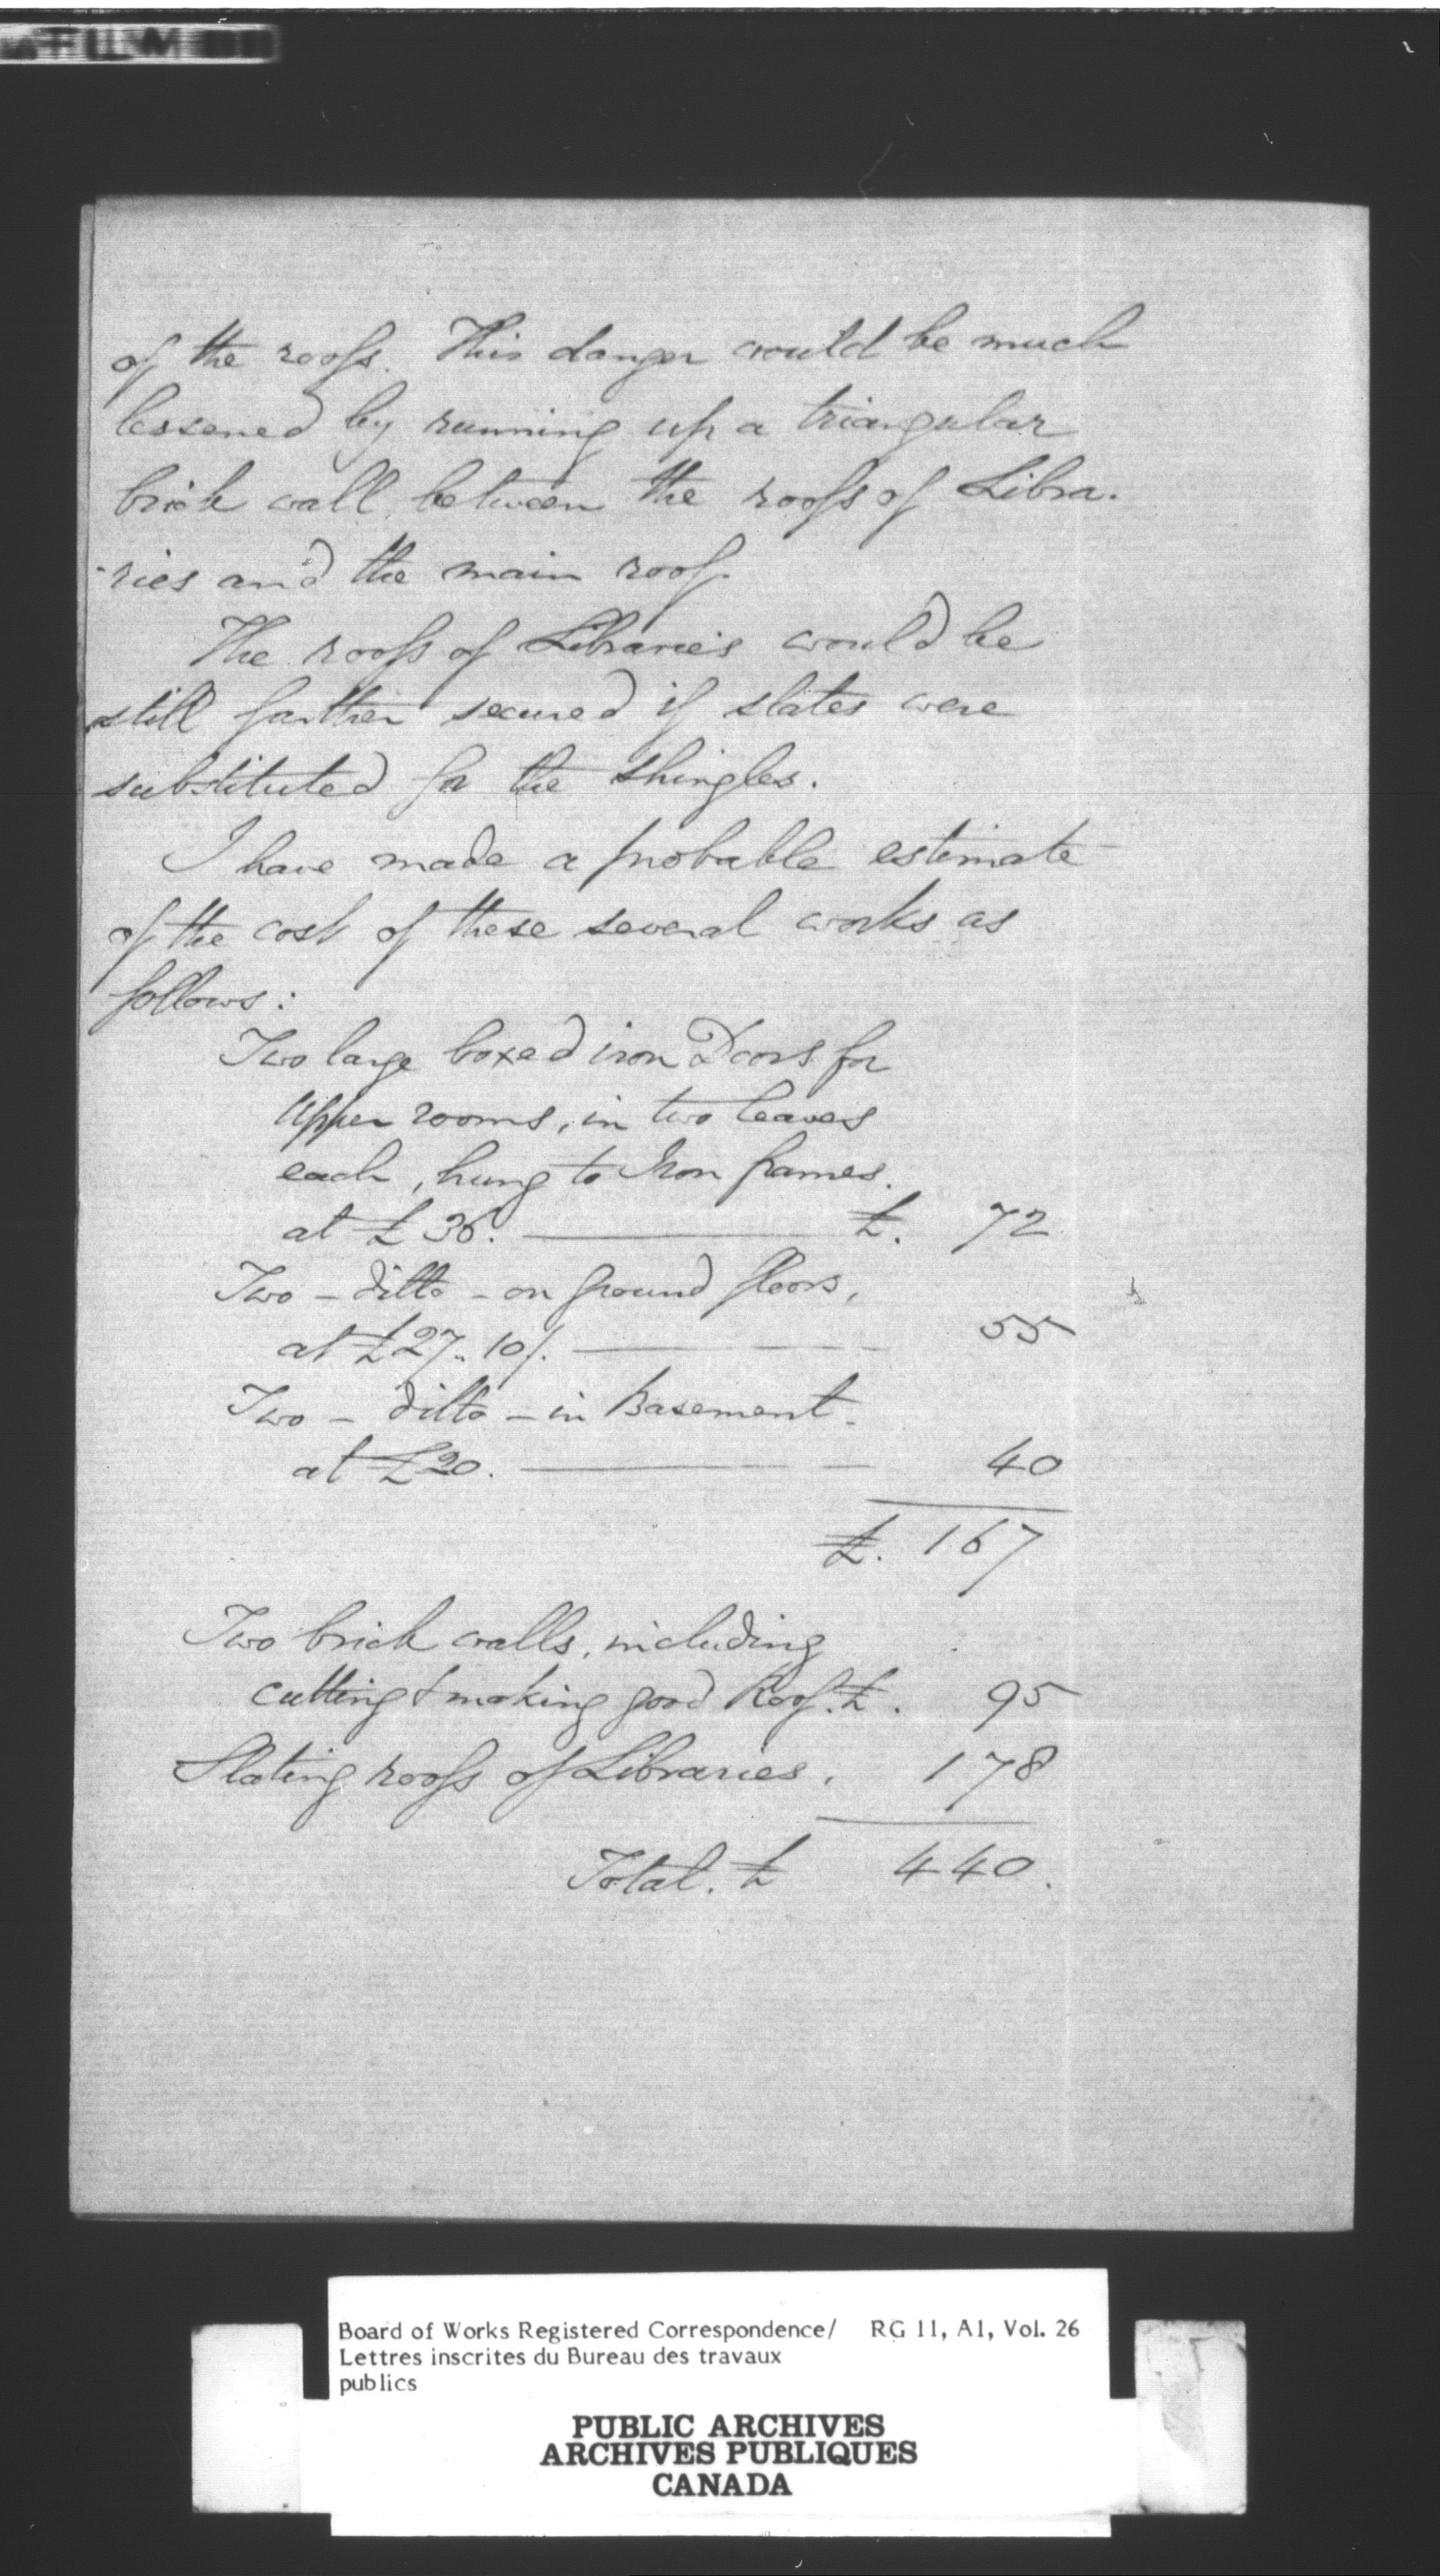 of the roofs. This danger would be much
lessened by running up a triangular
brick wall between the roofs of Libra-
-ries and the main roof.
The roofs of Libraries would be
still farther secured if slates were
substituted for the shingles.
I have made a probable estimate
of the cost of these several works as
follows:
Two large boxed iron Doors for
Upper rooms, in two leaves
each, hung to Iron frames.
at £36. £. 72
Two - ditto - on ground floors,
at £27.. 10/. 55
Two - ditto - in Basement.
at £20. 40
£. 167
Two brick walls, including
cutting & making good Roof. £. 95
Slating roofs of Libraries. 178
Total. £ 440.
Board of Works Registered Correspondence/ RG 11, A1, Vol. 26
Lettres inscrites du Bureau des travaux
publics
PUBLIC ARCHIVES
ARCHIVES PUBLIQUES
CANADA